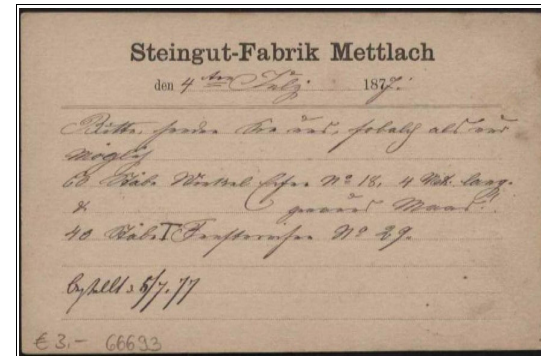 Steingut-Fabrik Mettlach
den 4ten July 1877.
Bitte, senden Sie uns, sobald als nur
möglich
60 Stäbe Winkel Eisen No 18, 4 Met. lang.
& genaues Maas!
40 Stäbe T Fenstereisen No 29.
bestellt 5/7.77
€ 3.- 66693